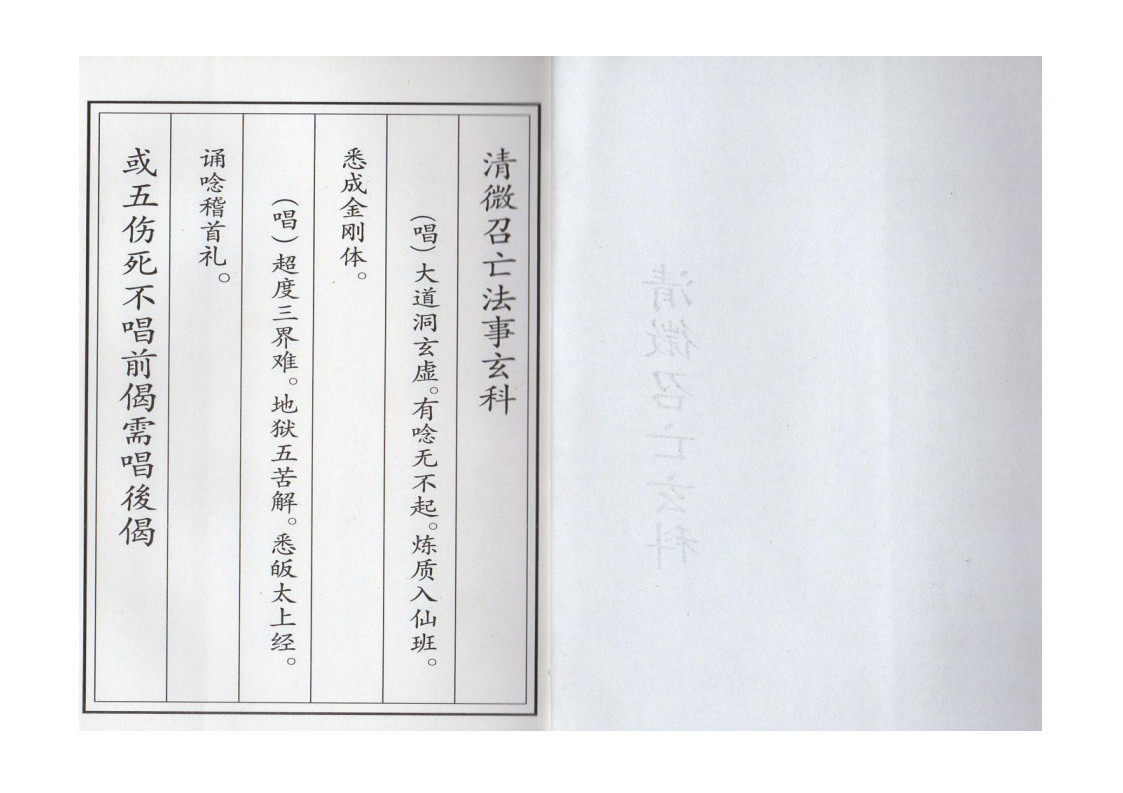 清微召亡法事玄科
（唱）大道洞玄虚。有唸无不起。炼质入仙班。
悉成金刚体。
（唱）超度三界难。地狱五苦解。悉皈太上经。
诵唸稽首礼。
或五伤死不唱前偈需唱後偈
清微召亡玄科